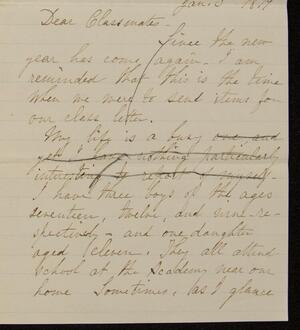 Jan. 3
Dear Classmates -
Since the new
year has come again - I am
reminded that this is the time
when we were to send items for
our class letter.
My life is a busy one, and
yet I have nothing particularly
interesting to report of myself.
I have three boys of the ages
seventeen, twelve, and nine - re-
spectively - and one daughter
aged eleven. They all attend
School at the Academy near our
home Sometimes, as I glance